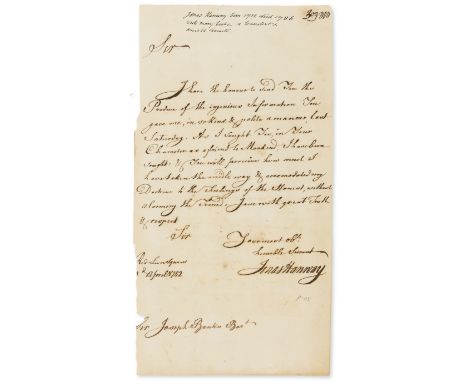 Jonas Hanway born 1712 died 1786
Sir
I have the honour to send You the
Produce of the ingenious Information You
gave me, in so kind & polite a manner, last
Saturday. As I sought You, in Your
Character as a friend to Mankind, I have been
sought: & You will perceive how much I
have taken the middle way & accomodated my
Doctrine to the feelings of the Moment, without
alarming the Timid. I am with great Truth
& respect
Sir
Your most obt.
humble Servant
Jonas Hanway
Red Lion Square
April 1782
Sir Joseph Banks Bart